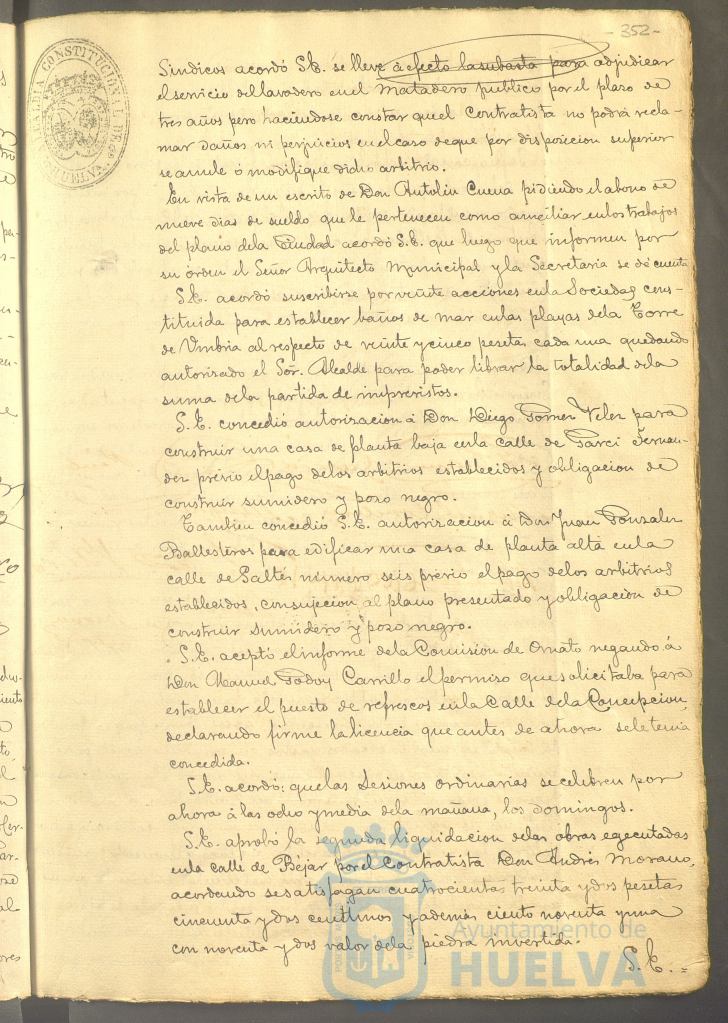 -352-
ALCALDIA CONSTITUCIONAL DE HUELVA
Sindicos acordó S.E. se lleve á efecto la subasta para adjudicar
el servicio del lavadero en el Matadero publico por el plazo de
tres años pero haciendose constar que el Contratista no podrá recla-
mar daños ni perjuicios en el caso de que por disposicion superior
se anule ó modifique dicho arbitrio.
En vista de un escrito de Don Antolin Cuena pidiendo el abono de
nueve dias de sueldo que le pertenecen como auxiliar en los trabajos
del plano de la Ciudad acordó S.E. que luego que informen por
su órden el Señor Arquitecto Municipal y la Secretaria se dé cuenta
S.E. acordó suscribirse por veinte acciones en la Sociedad cons-
tituida para establecer baños de mar en las playas de la Torre
de Umbria al respecto de veinte y cinco pesetas cada una quedando
autorizado el Sor. Alcalde para poder librar la totalidad de la
suma de la partida de imprevistos.
S.E. concedió autorizacion á Don Diego Gomez Velez para
construir una casa de planta baja en la calle de Garci Fernan-
dez prévio el pago de los arbitrios establecidos y obligacion de
construir sumidero y pozo negro.
Tambien concedió S.E. autorizacion á Don Juan Gonzalez
Ballesteros para edificar una casa de planta alta en la
calle de Saltés número seis prévio el pago de los arbitrios
establecidos, con sujecion al plano presentado y obligacion de
construir sumidero y pozo negro.
S.E. aceptó el informe de la Comision de Ornato negando á
Don Manuel Godoy Carrillo el permiso que solicitaba para
establecer el puesto de refrescos en la Calle de la Concepcion,
declarando firme la licencia que antes de ahora se le tenia
concedida.
S.E. acordó: que las Sesiones ordinarias se celebren por
ahora á las ocho y media de la mañana, los domingos.
S.E. aprobó la segunda liquidacion de las obras egecutadas
en la calle de Béjar por el Contratista Don Andrés Morano,
acordando se satisfagan cuatrocientas treinta y dos pesetas
cincuenta y dos centimos y además ciento noventa y una
con noventa y dos valor de la piedra invertida.
S.E.=
Ayuntamiento de
HUELVA